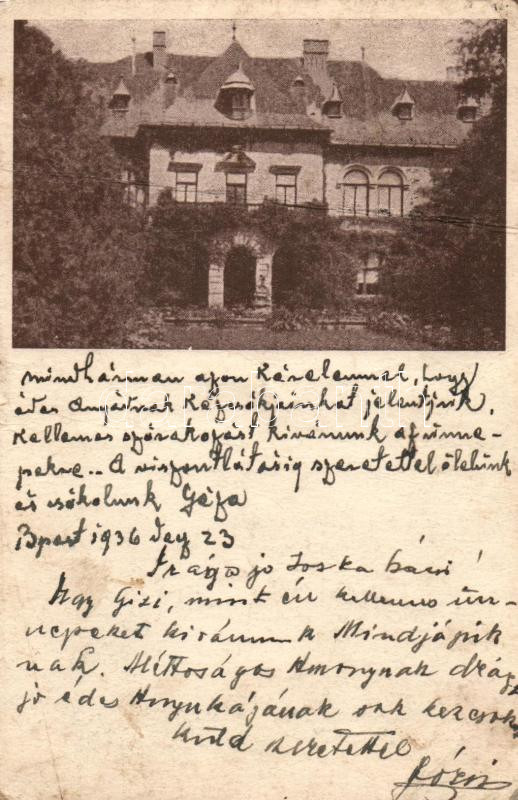 mindhárman azon kérelemmel, hogy
édes Anyádnak kézcsókjainkat jelentjük.
Kellemes szórakozást kivánunk az ünne-
pekre.. A viszontlátásig szeretettel ölelünk
és csókolunk Géza
Bpest 1936 dec 23
Drága jó Joska bácsi!
Ugy Gizi, mint én kellemes ün-
nepeket kivánunk Mindjájuk
nak. Méltóságos Asszonynak drága
jó édes Anyukájának sok kézcsókot
küld szeretettel